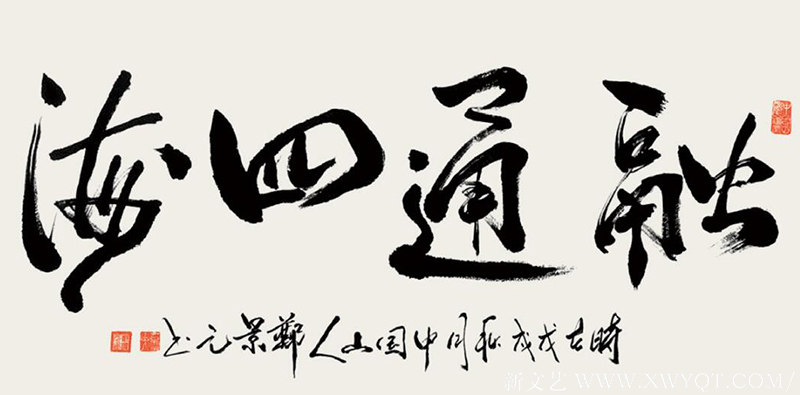 融通四海
時在戊戌秋月中国山人鄭景元书
新文艺 WWW.XWYQT.COM/